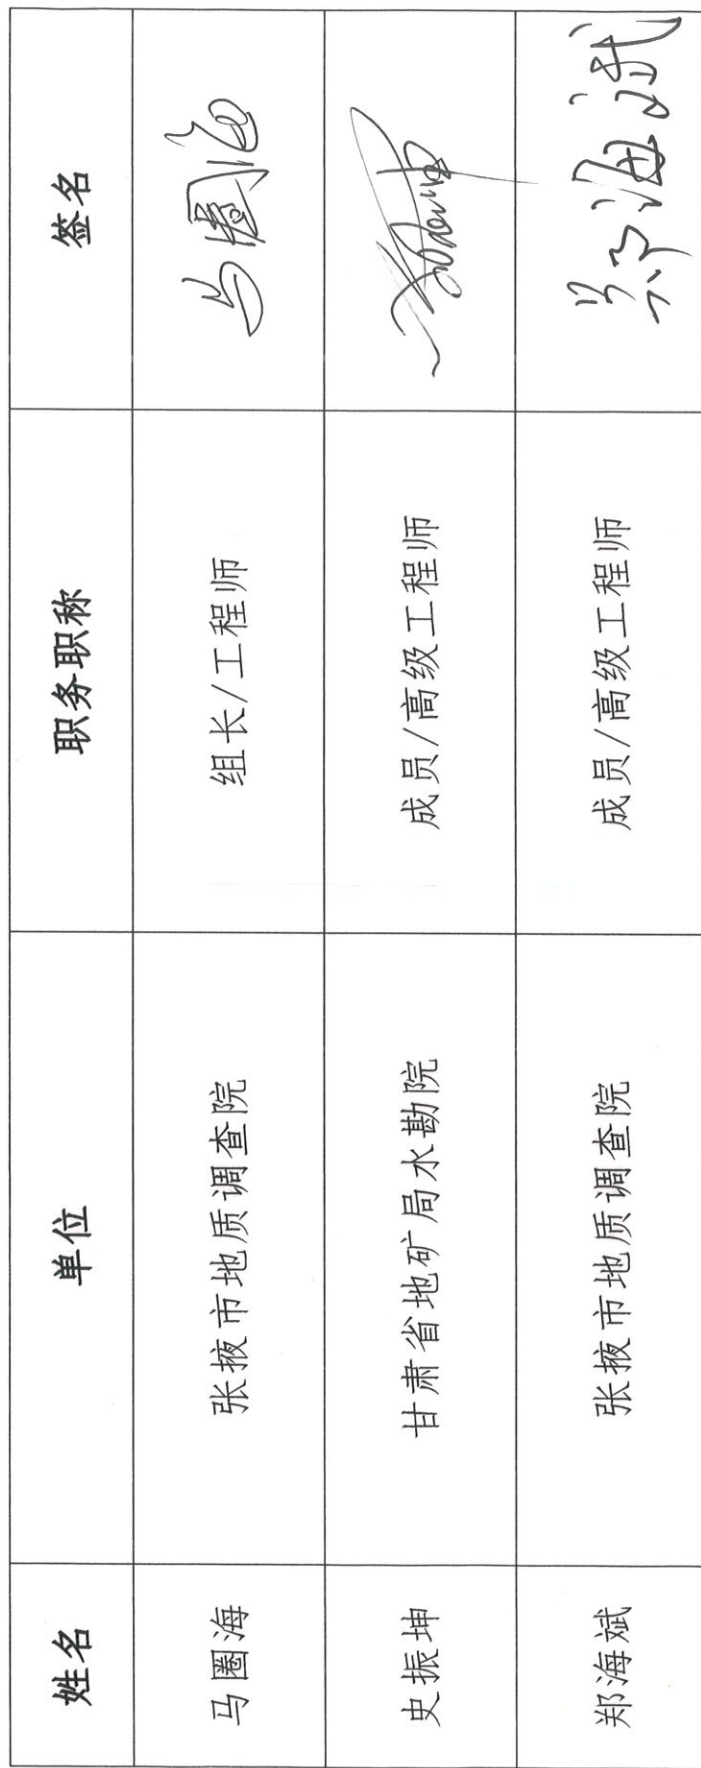 姓名 单位 职务职称 签名
马圈海 张掖市地质调查院 组长/工程师 马圈海
史振坤 甘肃省地矿局水勘院 成员/高级工程师
郑海斌 张掖市地质调查院 成员/高级工程师 郑海斌